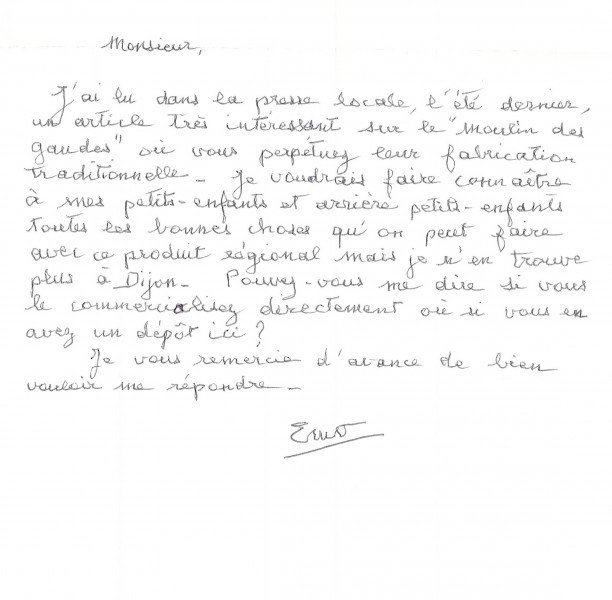 Monsieur,
J'ai lu dans la presse locale, l'été dernier,
un article très intéressant sur le "moulin des
gaudes" où vous perpétuez leur fabrication
traditionnelle - Je voudrais faire connaître
à mes petits-enfants et arrière petits-enfants
toutes les bonnes choses qu'on peut faire
avec ce produit régional mais je n'en trouve
plus à Dijon - Pouvez-vous me dire si vous
le commercialisez directement où si vous en
avez un dépôt ici ?
Je vous remercie d'avance de bien
vouloir me répondre -